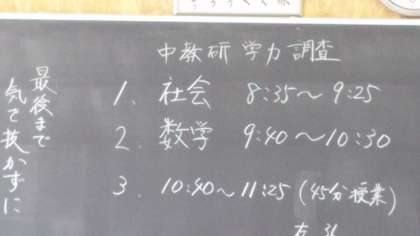 中教研 学力調査
1. 社会 8:35～9:25
2. 数学 9:40～10:30
3. 10:40～11:25 (45分授業)
最後まで
気を抜かずに